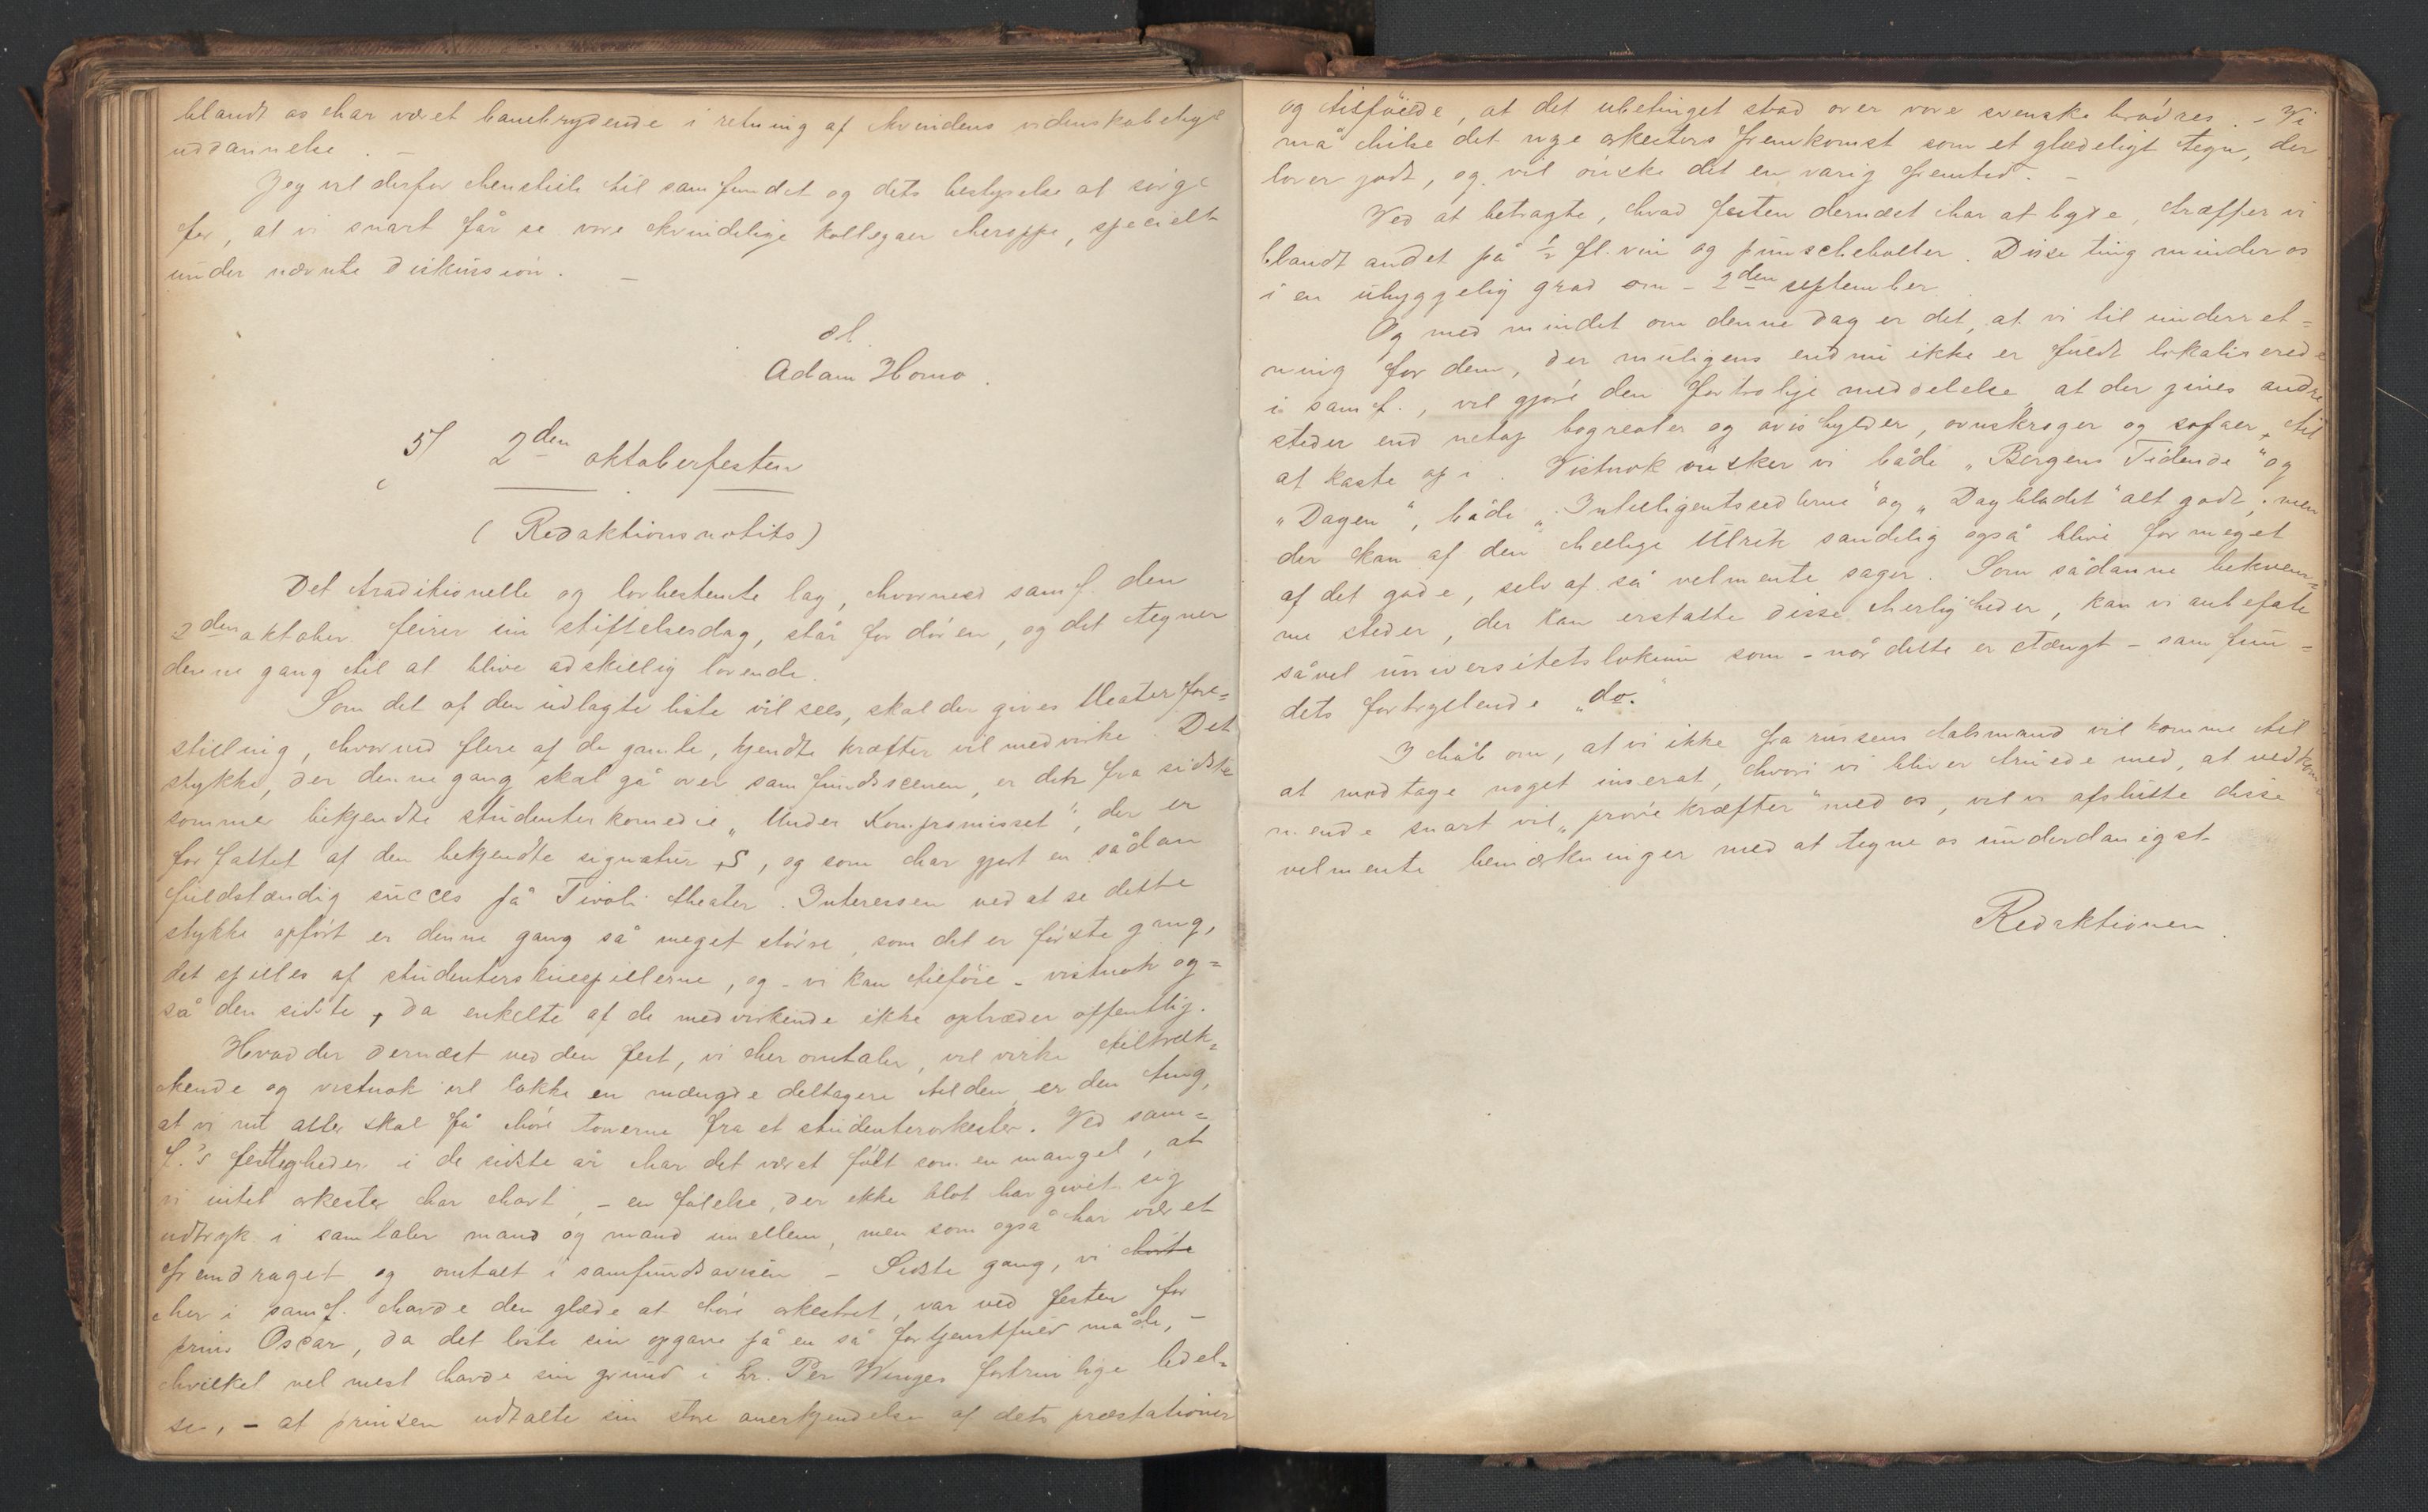 blandt os har været banebrydende i retning af kvindens videnskabelige
uddannelse. –
Jeg vil derfor henstille til samfundet og dets bestyrelse at sørge
for, at vi snart får se vore kvindelige kollegaer heroppe, specielt
under nævnte diskussion. –
Adam Homo.
5/ 2den oktoberfesten
(Redaktionsnotits)
Det traditionelle og lovbestemte lag, hvormed samf. den
2den oktober feirer sin stiftelsesdag, står for døren, og det tegner
denne gang til at blive adskillig lovende.
Som det af den udlagte liste vil sees, skal der gives theaterfore=
stilling, hvorved flere af de gamle, kjendte kræfter vil medvirke. Det
stykke, der denne gang skal gå over samfundsscenen, er det fra sidste
sommer bekjendte studenterkomedie „Under Kompromisset", der er
forfattet af den bekjendte signatur S, og som har gjort en sådan
fuldstændig succes på Tivoli theater. Interessen ved at se dette
stykke opført er denne gang så meget større, som det er første gang,
det spilles af studenterskuespillerne, og – vi kan tilføie – vistnok og=
så den sidste, da enkelte af de medvirkende ikke optræder offentlig.
Hvad der dernæst ved den fest, vi her omtaler, vil virke tiltræk=
kende og vistnok vil lokke en mængde deltagere til den, er den ting,
at vi nu atter skal få høre tonerne fra et studenterorkester. Ved sam=
f.'s festligheder i de sidste år har det været følt som en mangel, at
vi intet orkester har havt, – en følelse, der ikke blot har givet sig
udtryk i samtaler mand og mand imellem, men som også har været
fremdraget og omtalt i samfundsavisen – Sidste gang, vi hørte
her i samf. havde den glæde at høre orkestret, var ved festen for
prins Oscar, da det løste sin opgave på en så fortjenstfuld måde, –
hvilket vel mest havde sin grund i hr. Per Winges fortrinlige ledel=
se, – at prinsen udtalte sin store anerkjendelse af dets præstationer
og tilføiede, at det ubetinget stod over vore svenske brødres. – Vi
må hilse det nye orkesters fremkomst som et glædeligt tegn, der
lover godt, og vil ønske det en varig fremtid. –
Ved at betragte, hvad festen dernæst har at byde, træffer vi
blandt andet på ½ fl. vin og punscheboller. Disse ting minder os
i en uhyggelig grad om – 2den september.
Og med mindet om denne dag er det, at vi til underret=
ning for dem, der muligens endnu ikke er fuldt lokaliserede
i samf., vil gjøre den fortrolige meddelelse, at der gives andre
steder end netop bogreoler og avishylder, ovnskroger og sofaer, til
at kaste op i. Vistnok ønsker vi både „Bergens Tidende" og
„Dagen", både „Intelligentssedlerne" og „Dagbladet" alt godt; men
der kan af den hellige Ulrik sandelig også blive for meget
af det gode, selv af så velmente sager. Som sådanne bekvem=
me steder, der kan erstatte disse herligheder, kan vi anbefale
såvel universitetslokum som – når dette er stængt – samfun=
dets fortryllende „do."
I håb om, at vi ikke fra russens talsmand vil komme til
at modtage noget inserat, hvori vi bliver truede med, at vedkom=
mende snart vil „prøve kræfter" med os, vil vi afslutte disse
velmente bemærkninger med at tegne os underdanigst
Redaktionen.